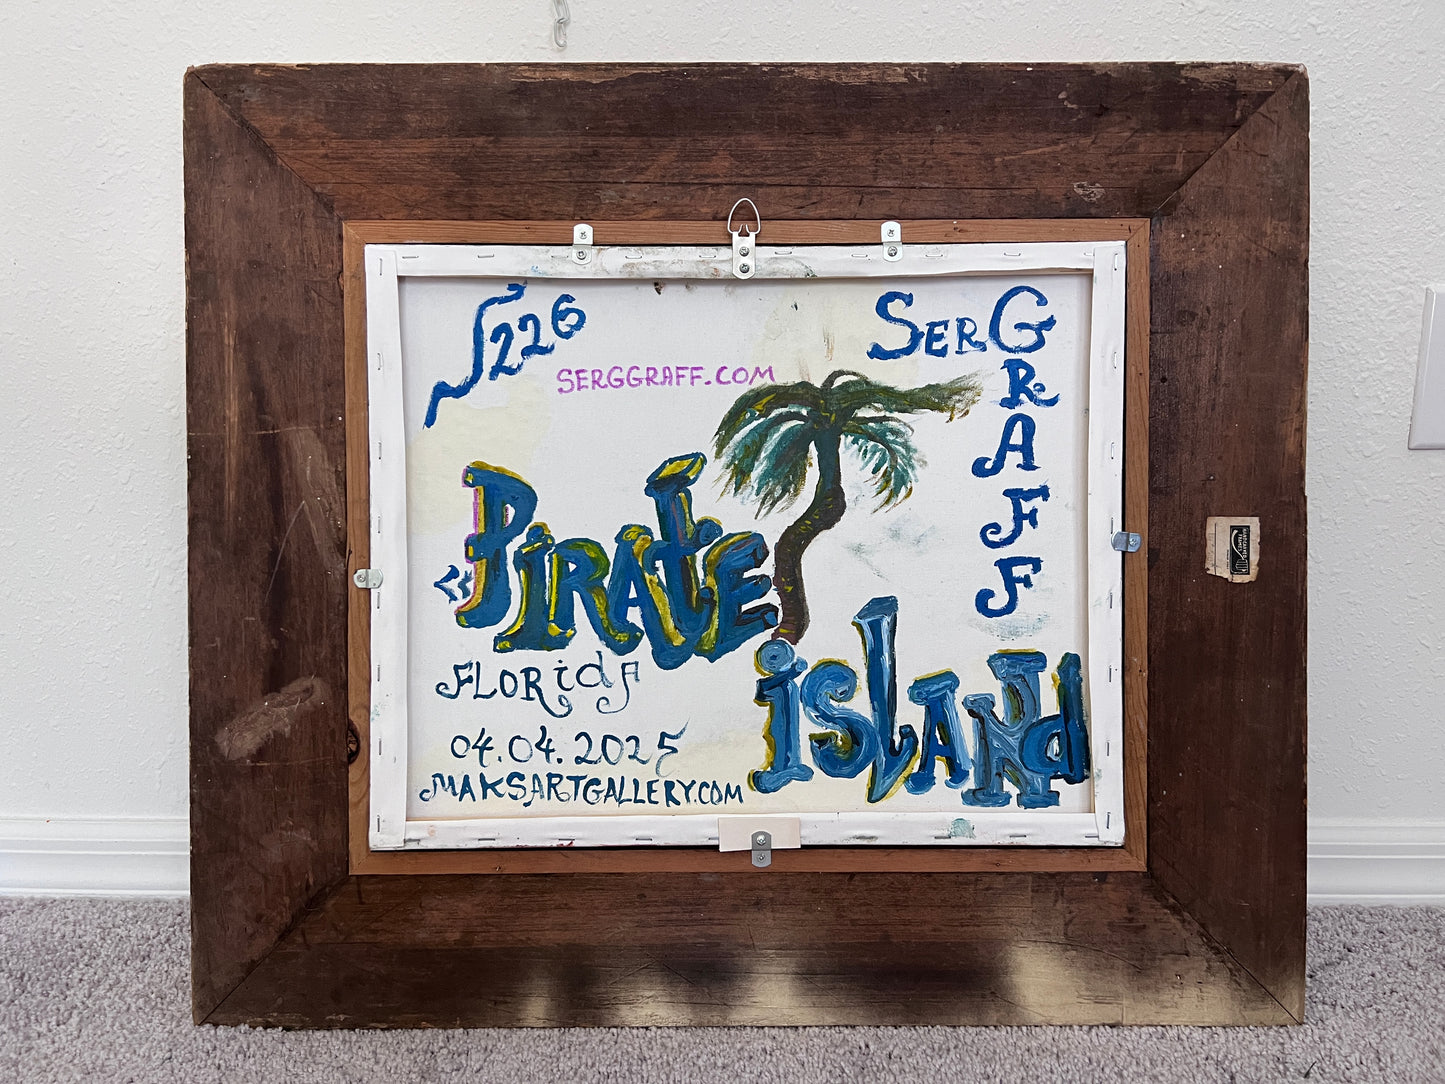 №226
SERGGRAFF.COM
SERGRAFF
«PIRATE
ISLAND
FLORidA
04.04.2025
MAKSARTGALLERY.COM